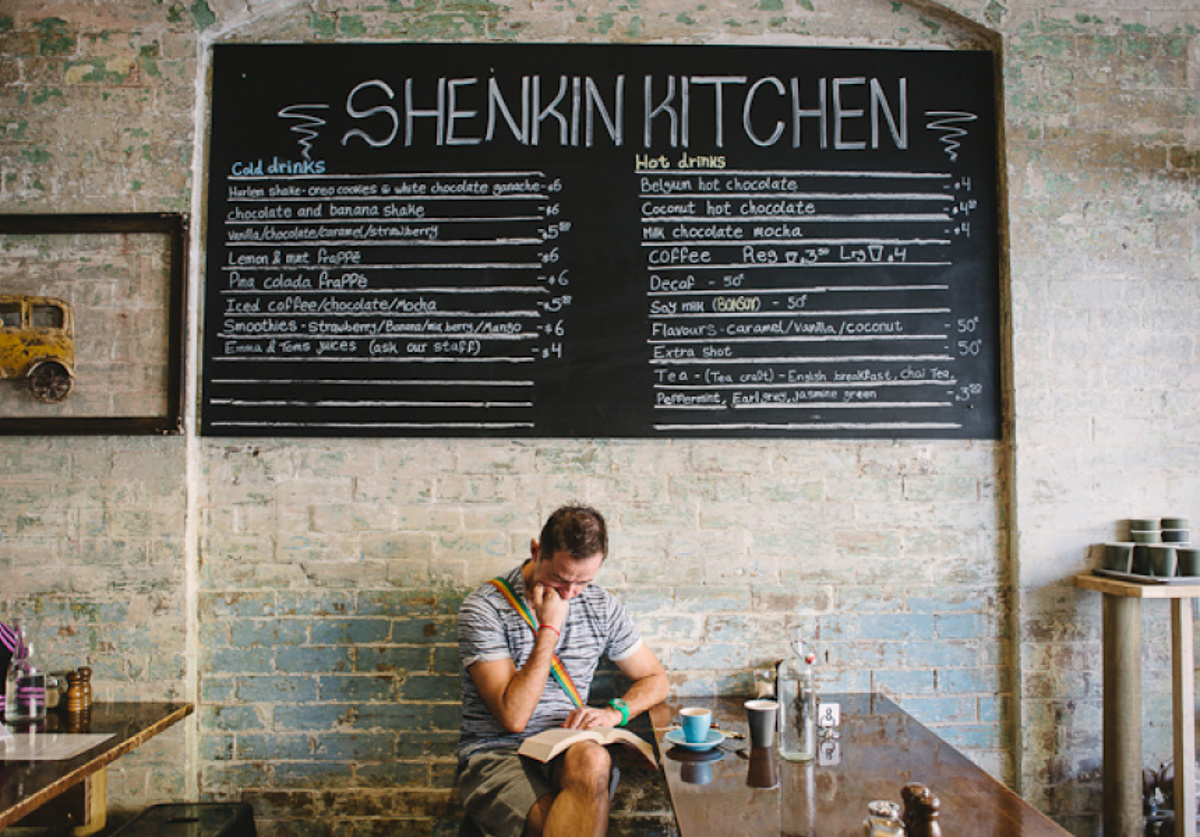 SHENKIN KITCHEN
Cold drinks
Harlem shake-oreo cookies & white chocolate ganache-$6
chocolate and banana shake -$6
Vanilla/chocolate/caramel/strawberry -$5.50
Lemon & mint fraPPé -$6
Pina colada fraPPé -$6
Iced coffee/chocolate/Mocha -$5.50
Smoothies-strawberry/Banana/mix berry/Mango -$6
Emma & Toms juices (ask our staff) -$4
Hot drinks
Belgium hot chocolate -$4
Coconut hot chocolate -$4.50
Milk chocolate mocha -$4
Coffee Reg $3.50 Lrg $4
Decaf - 50c
Soy milk (BONSOY) - 50c
Flavours-caramel/vanilla/coconut - 50c
Extra shot - 50c
Tea-(Tea craft)-English breakfast, chai Tea,
Peppermint, Earl grey, jasmine green -$3.50
8